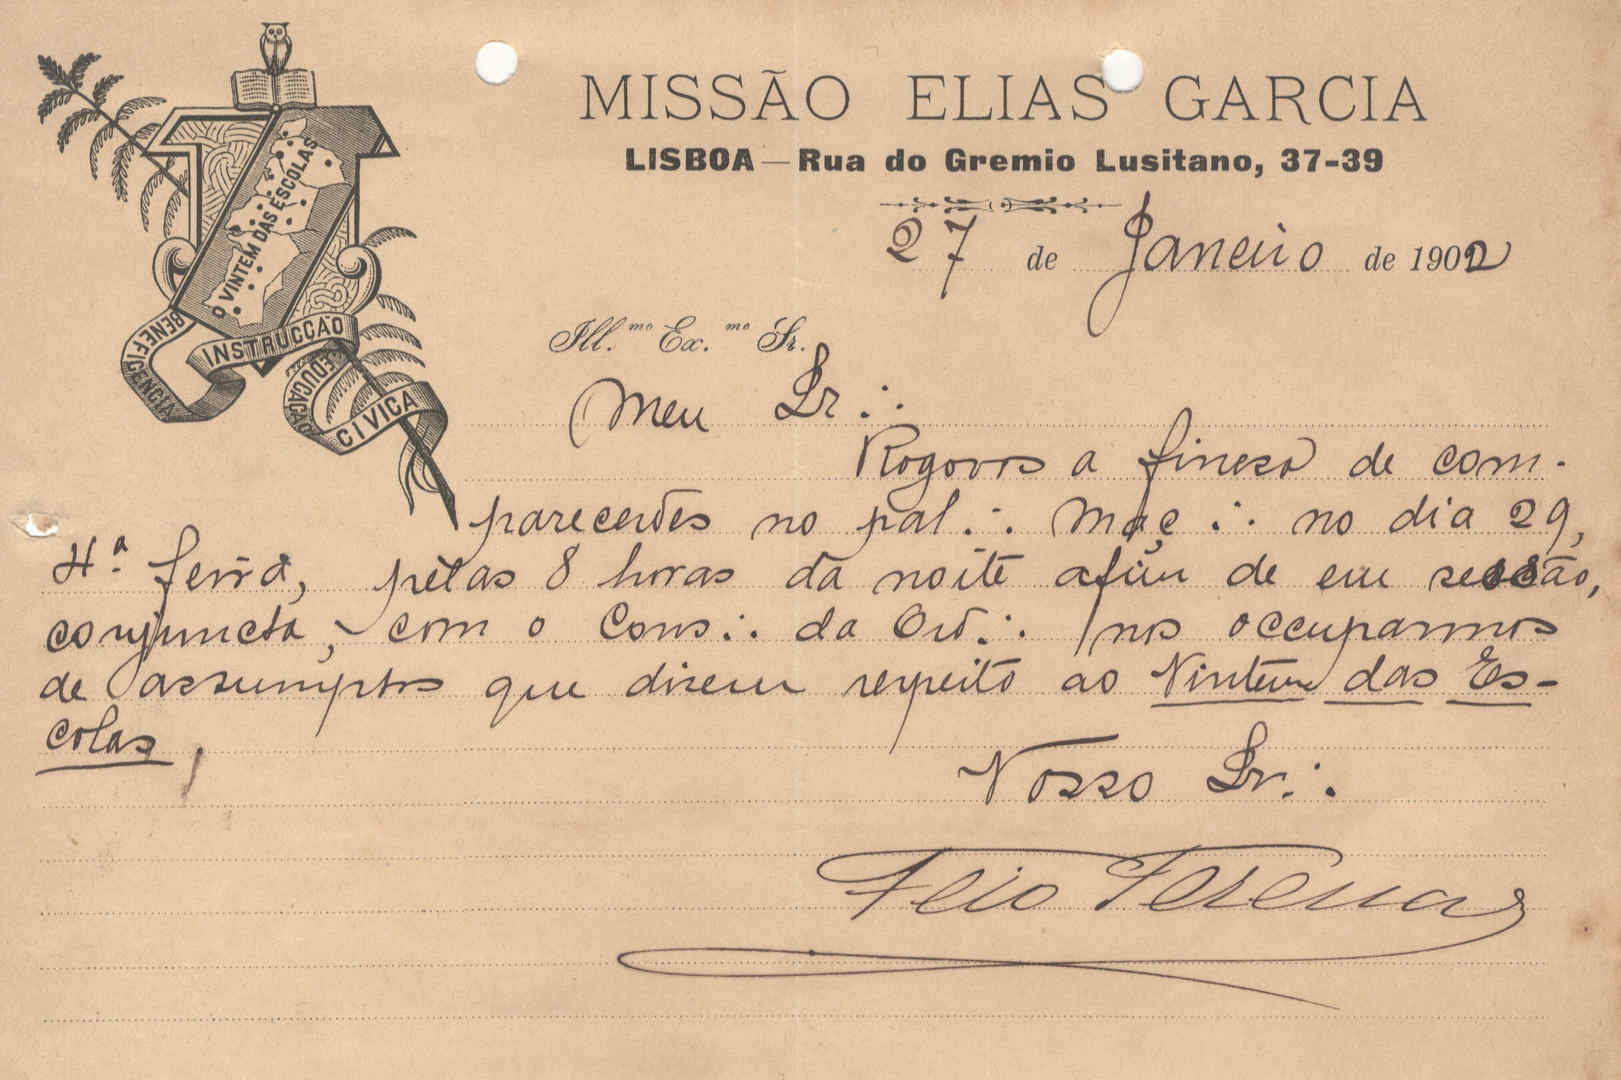 MISSÃO ELIAS GARCIA
LISBOA — Rua do Gremio Lusitano, 37-39
27 de Janeiro de 1902
O VINTEM DAS ESCOLAS
BENEFICENCIA
INSTRUCÇÃO
EDUCAÇÃO
CIVICA
Ill.mo Ex.mo Sr.
Meu Ir∴
Rogovos a finesa de com-
parecerdes no pal∴ Maç∴ no dia 29,
4.ª feira, pelas 8 horas da noite afim de em sessão,
conjuncta, com o Cons∴ da Ord∴ nos occuparmos
de assumptos que dizem respeito ao Vintem das Es-
colas,
Vosso Ir∴
Feio Terenas